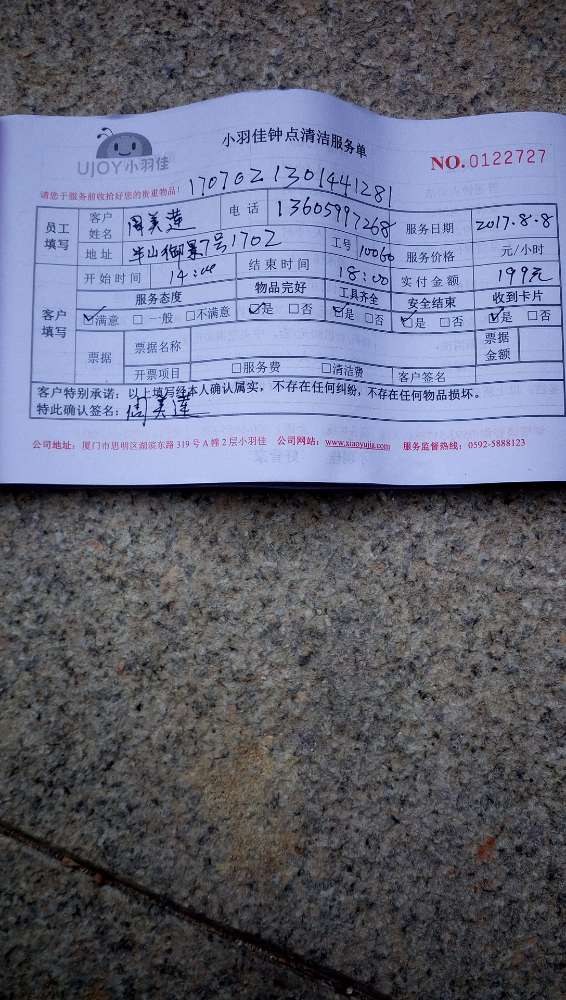 UJOY小羽佳
小羽佳钟点清洁服务单
NO.0122727
请您于服务前收拾好您的贵重物品！
1707021301441281
员工填写 客户姓名 周美莲 电话 13605997268 服务日期 2017.8.8
地址 半山御景7号1702 工号 10060 服务价格 元/小时
客户填写 开始时间 14:00 结束时间 18:00 实付金额 199元
服务态度 物品完好 工具齐全 安全结束 收到卡片
☑满意 □一般 □不满意 ☑是 □否 ☑是 □否 ☑是 □否 ☑是 □否
票据 票据名称 票据金额
开票项目 □服务费 □清洁费 客户签名
客户特别承诺：以上填写经本人确认属实，不存在任何纠纷，不存在任何物品损坏。
特此确认签名：周美莲
公司地址：厦门市思明区湖滨东路319号A幢2层小羽佳 公司网站：www.xiaoyujia.com 服务监督热线：0592-5888123